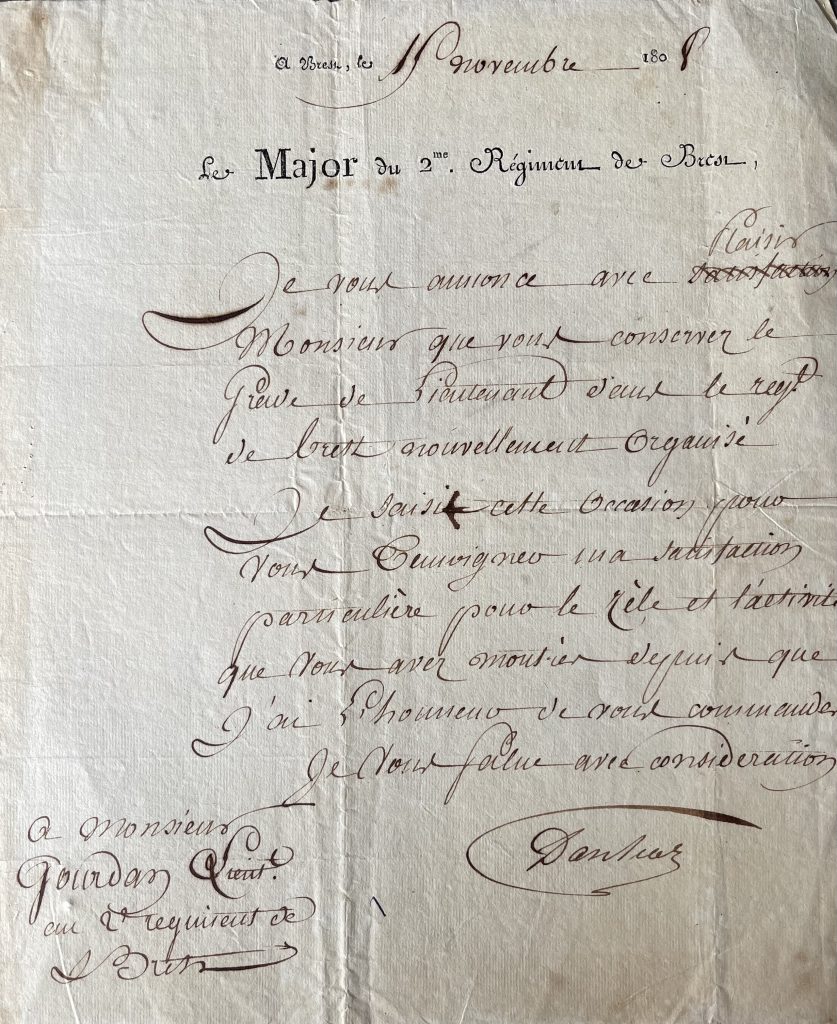 A Brest, le 15 novembre 1808
Le Major du 2me. Régiment de Brest,
Plaisir
Je vous annonce avec satisfaction
Monsieur que vous conservez le
Grade de Lieutenant dans le regt.
de brest nouvellement Organisé
Je saisit cette Occasion pour
Vous Temoigner ma satisfaction
particulière pour le zèle et l'activité
que Vous avez montrés depuis que
J'ai L'honneur de vous commander
Je Vous salue avec consideration
A Monsieur
Gourdan Lieut.
au 2e regiment de
Brest